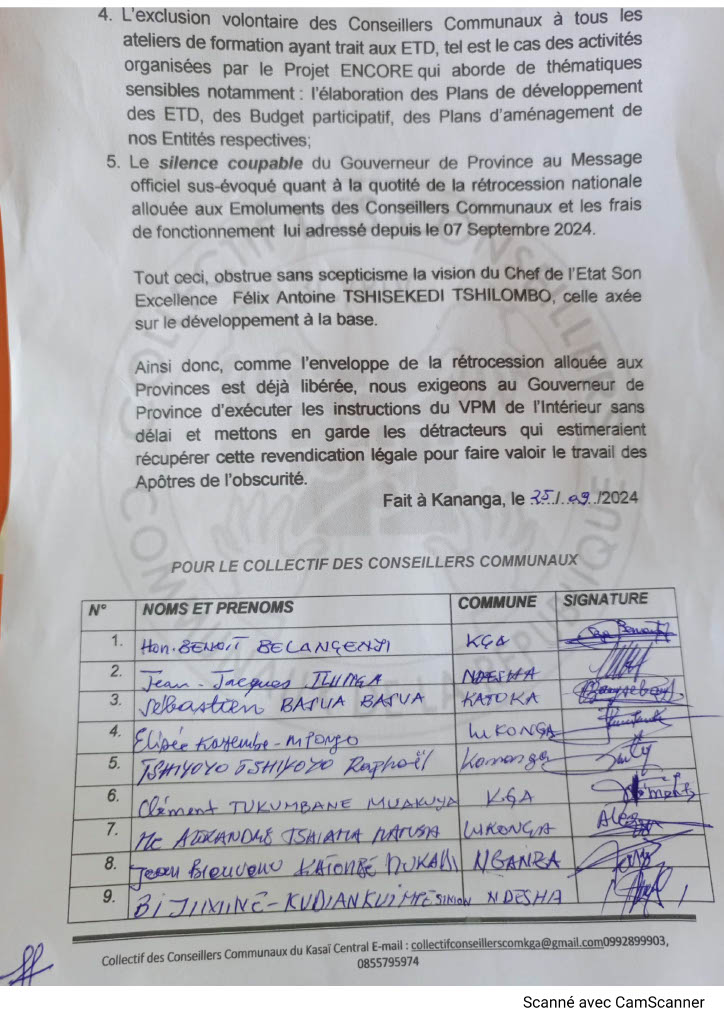 4. L'exclusion volontaire des Conseillers Communaux à tous les
ateliers de formation ayant trait aux ETD, tel est le cas des activités
organisées par le Projet ENCORE qui aborde de thématiques
sensibles notamment : l'élaboration des Plans de développement
des ETD, des Budget participatif, des Plans d'aménagement de
nos Entités respectives;
5. Le silence coupable du Gouverneur de Province au Message
officiel sus-évoqué quant à la quotité de la rétrocession nationale
allouée aux Emoluments des Conseillers Communaux et les frais
de fonctionnement lui adressé depuis le 07 Septembre 2024.
Tout ceci, obstrue sans scepticisme la vision du Chef de l'Etat Son
Excellence Félix Antoine TSHISEKEDI TSHILOMBO, celle axée
sur le développement à la base.
Ainsi donc, comme l'enveloppe de la rétrocession allouée aux
Provinces est déjà libérée, nous exigeons au Gouverneur de
Province d'exécuter les instructions du VPM de l'Intérieur sans
délai et mettons en garde les détracteurs qui estimeraient
récupérer cette revendication légale pour faire valoir le travail des
Apôtres de l'obscurité.
Fait à Kananga, le 25/09/2024
POUR LE COLLECTIF DES CONSEILLERS COMMUNAUX
N° NOMS ET PRENOMS COMMUNE SIGNATURE
1. Hon. BENOIT BELANGENYI KGA
2. Jean-Jacques ILUNGA NDESHA
3. Sébastien BASUA BASUA KATOKA
4. Elisée Kayembe-MPONGO LUKONGA
5. TSHIYOYO TSHIYOYO Raphaël Kananga
6. Clément TUKUMBANE MUAKUYA KGA
7. Me ALEXANDRE TSHIAMA LUKONGA
8. Jean Bienvenu KATOMBE MUKADI NGANZA
9. BIJIMINE-KUDIANKUIMPE SIMON NDESHA
Collectif des Conseillers Communaux du Kasaï Central E-mail : collectifconseillerscomkga@gmail.com0992899903,
0855795974
Scanné avec CamScanner